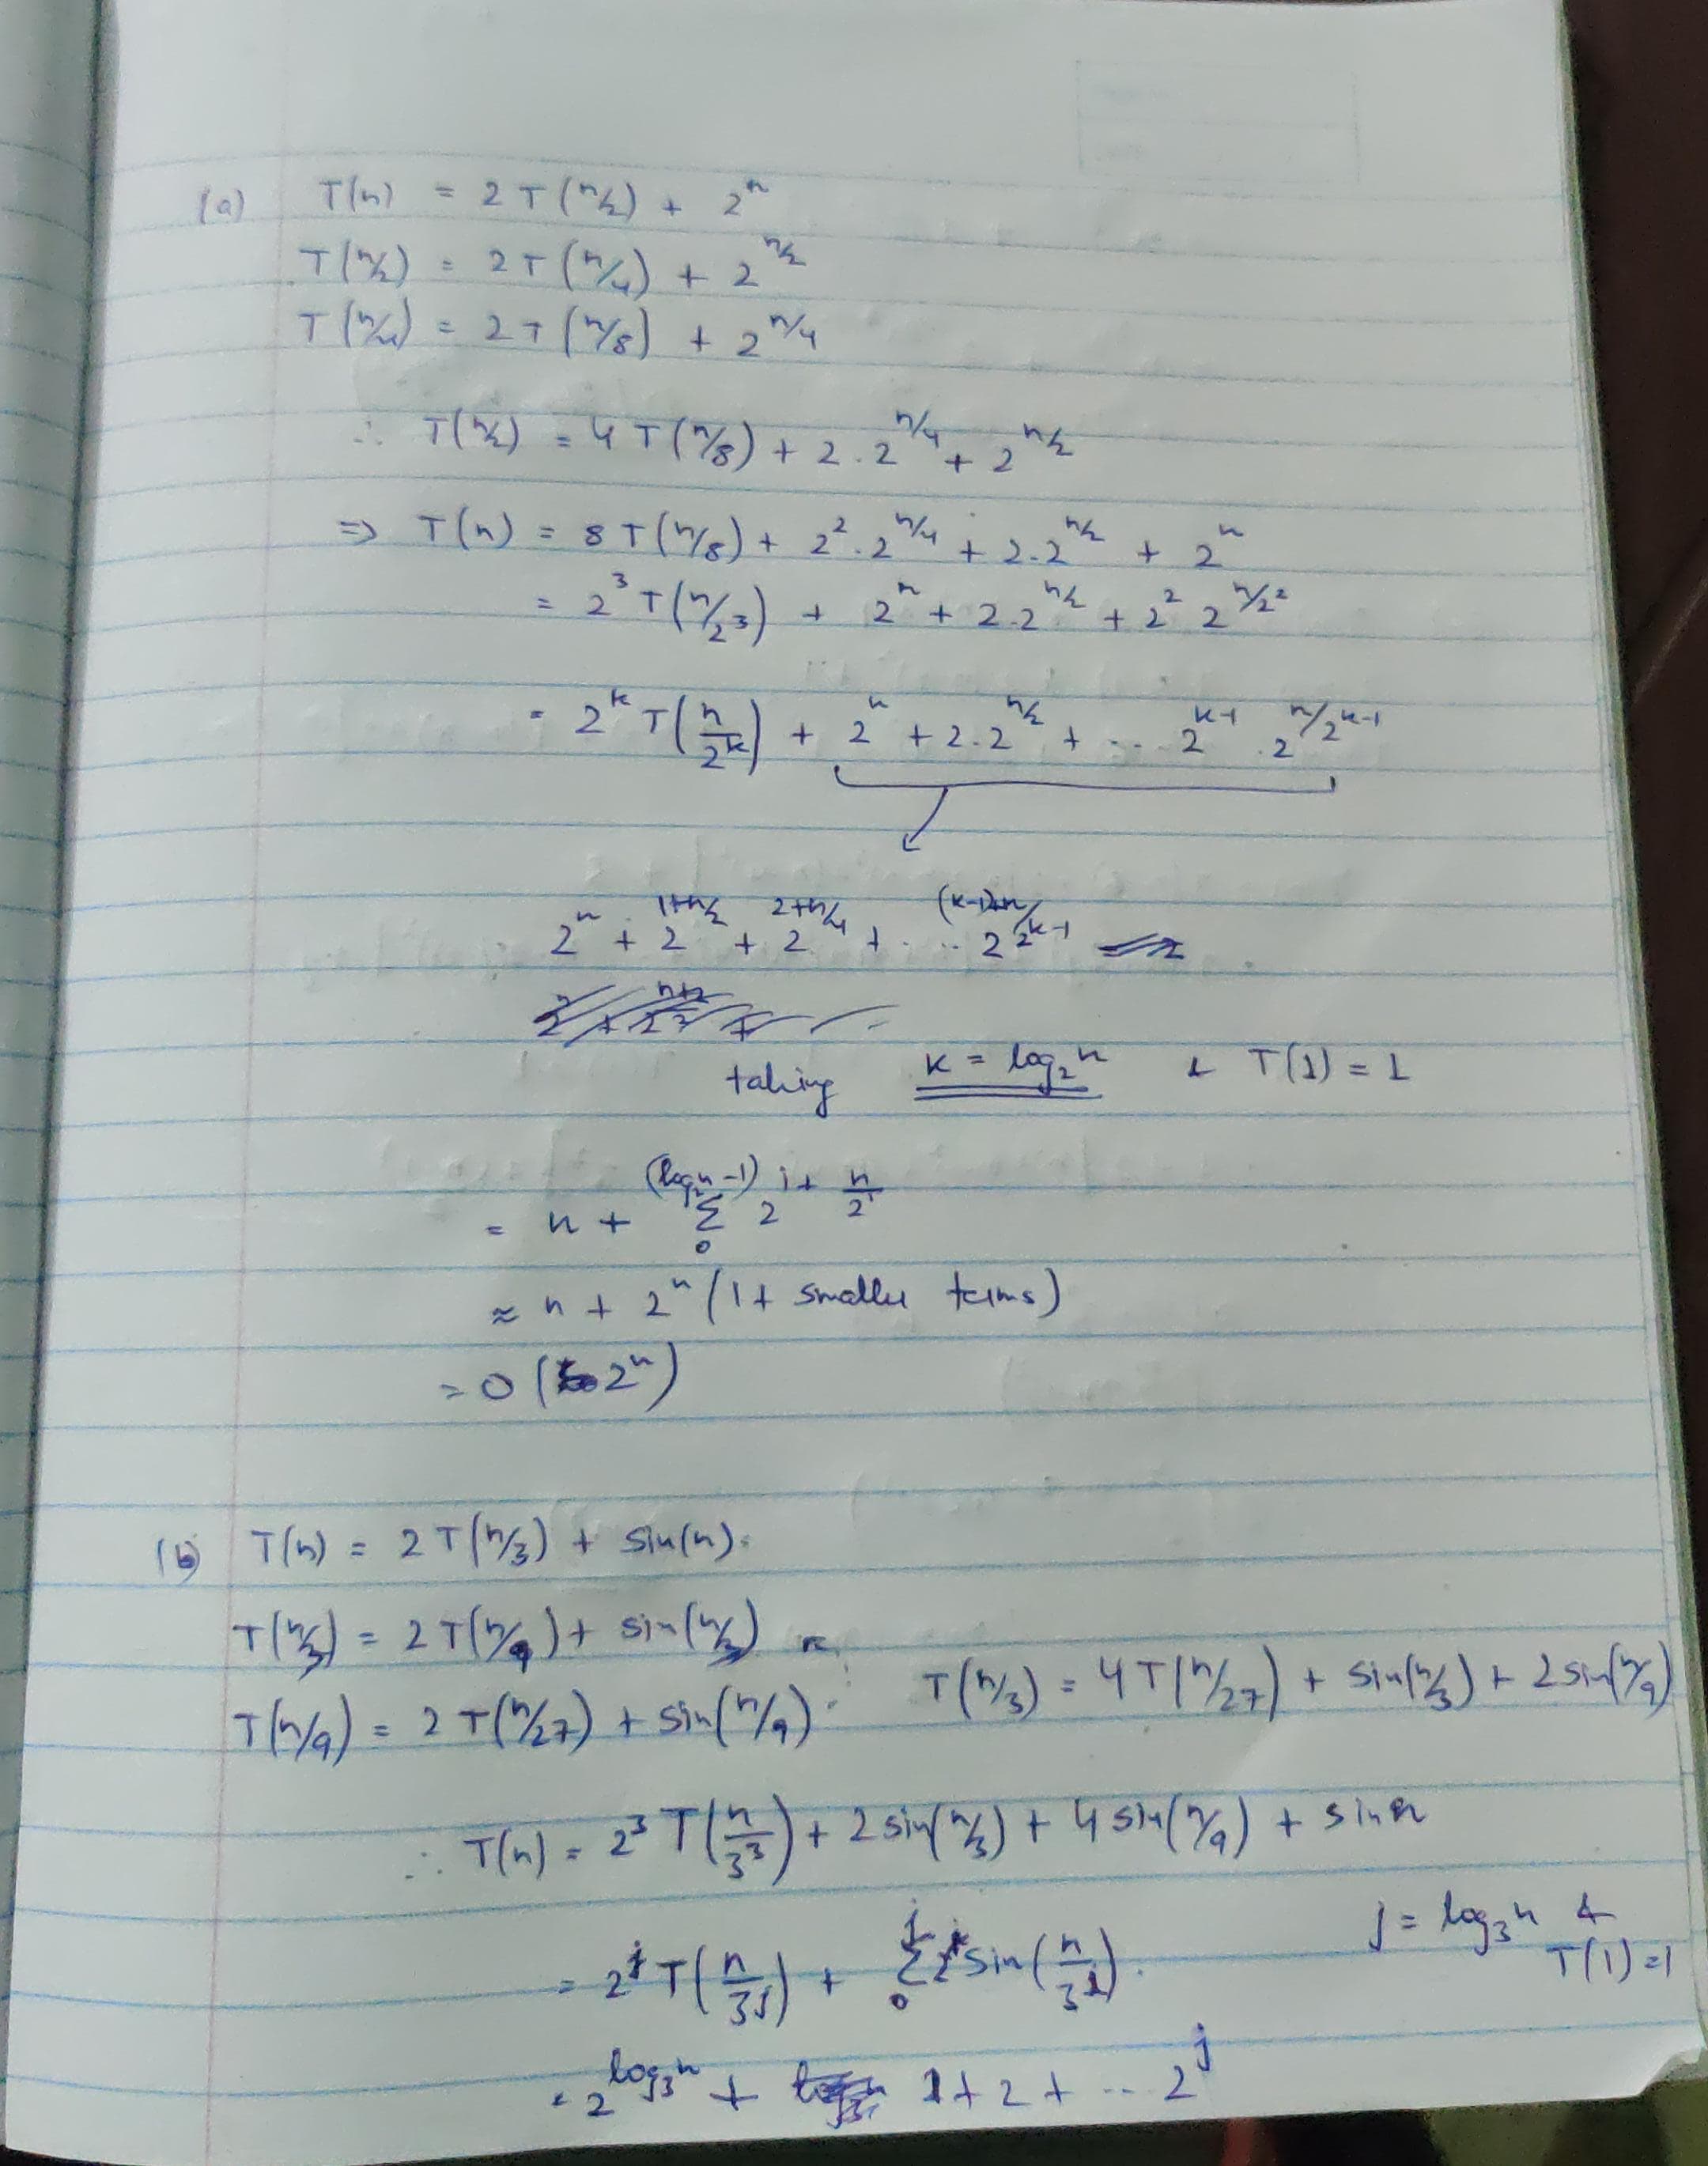 (a) T(n) = 2T(n/2) + 2^n
T(n/2) = 2T(n/4) + 2^{n/2}
T(n/4) = 2T(n/8) + 2^{n/4}
∴ T(n/2) = 4T(n/8) + 2.2^{n/4} + 2^{n/2}
⇒ T(n) = 8T(n/8) + 2^2.2^{n/4} + 2.2^{n/2} + 2^n
= 2^3 T(n/2^3) + 2^n + 2.2^{n/2} + 2^2 2^{n/2^2}
= 2^k T(n/2^k) + 2^n + 2.2^{n/2} + ... 2^{k-1}.2^{n/2^{k-1}}
2^n + 2^{1+n/2} + 2^{2+n/4} + ... 2^{(k-1)+n/2^{k-1}}
taking k = log_2 n & T(1) = 1
= n + Σ_0^{(log_2 n -1)} 2^{i + n/2^i}
≈ n + 2^n (1 + smaller terms)
= O(2^n)
(b) T(n) = 2T(n/3) + sin(n).
T(n/3) = 2T(n/9) + sin(n/3)
T(n/9) = 2T(n/27) + sin(n/9) ∴ T(n/3) = 4T(n/27) + sin(n/3) + 2sin(n/9)
∴ T(n) = 2^3 T(n/3^3) + 2sin(n/3) + 4sin(n/9) + sin n
= 2^j T(n/3^j) + Σ_0^j 2^i sin(n/3^i). j = log_3 n & T(1)=1
= 2^{log_3 n} + 1 + 2 + ... 2^j